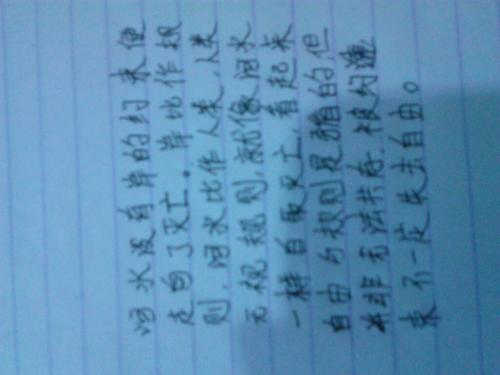 河水没有岸的约束便
走向了灭亡。岸比作规
则,河水比作人类,人类
无视规则,就像河水
一样自取灭亡,看起来
自由与规则是矛盾的,但
并非无法共存,被约
束不一定失去自由。